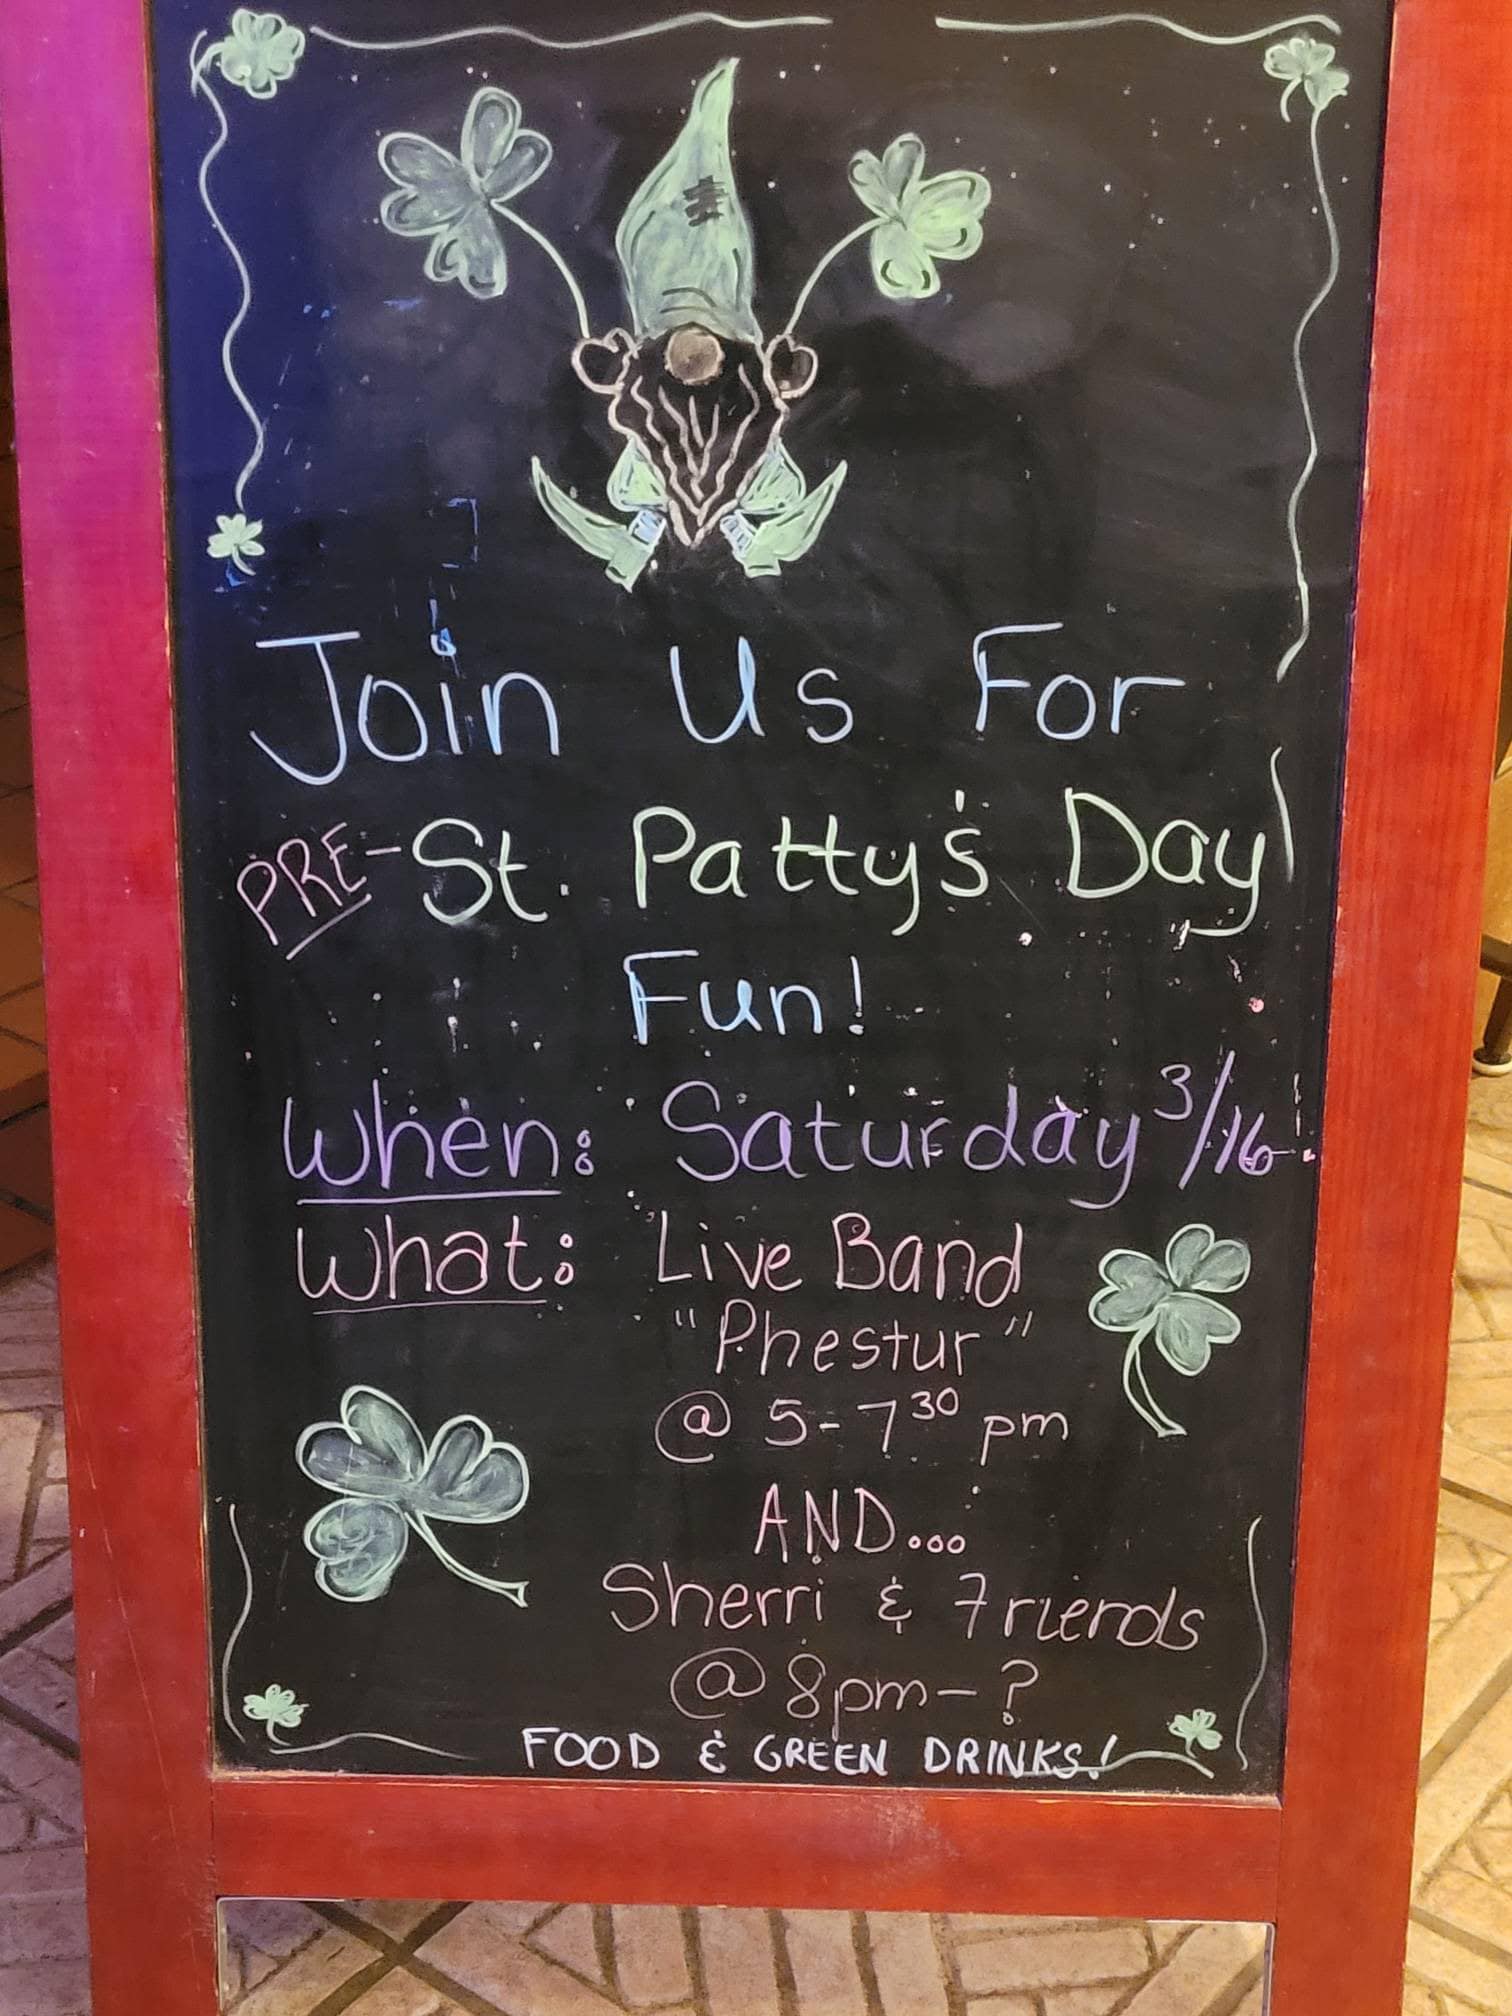 Join Us For
PRE-St. Patty's Day
Fun!
When: Saturday 3/16
What: Live Band
"Phestur"
@ 5-7³⁰ pm
AND...
Sherri & Friends
@ 8pm-?
FOOD & GREEN DRINKS!